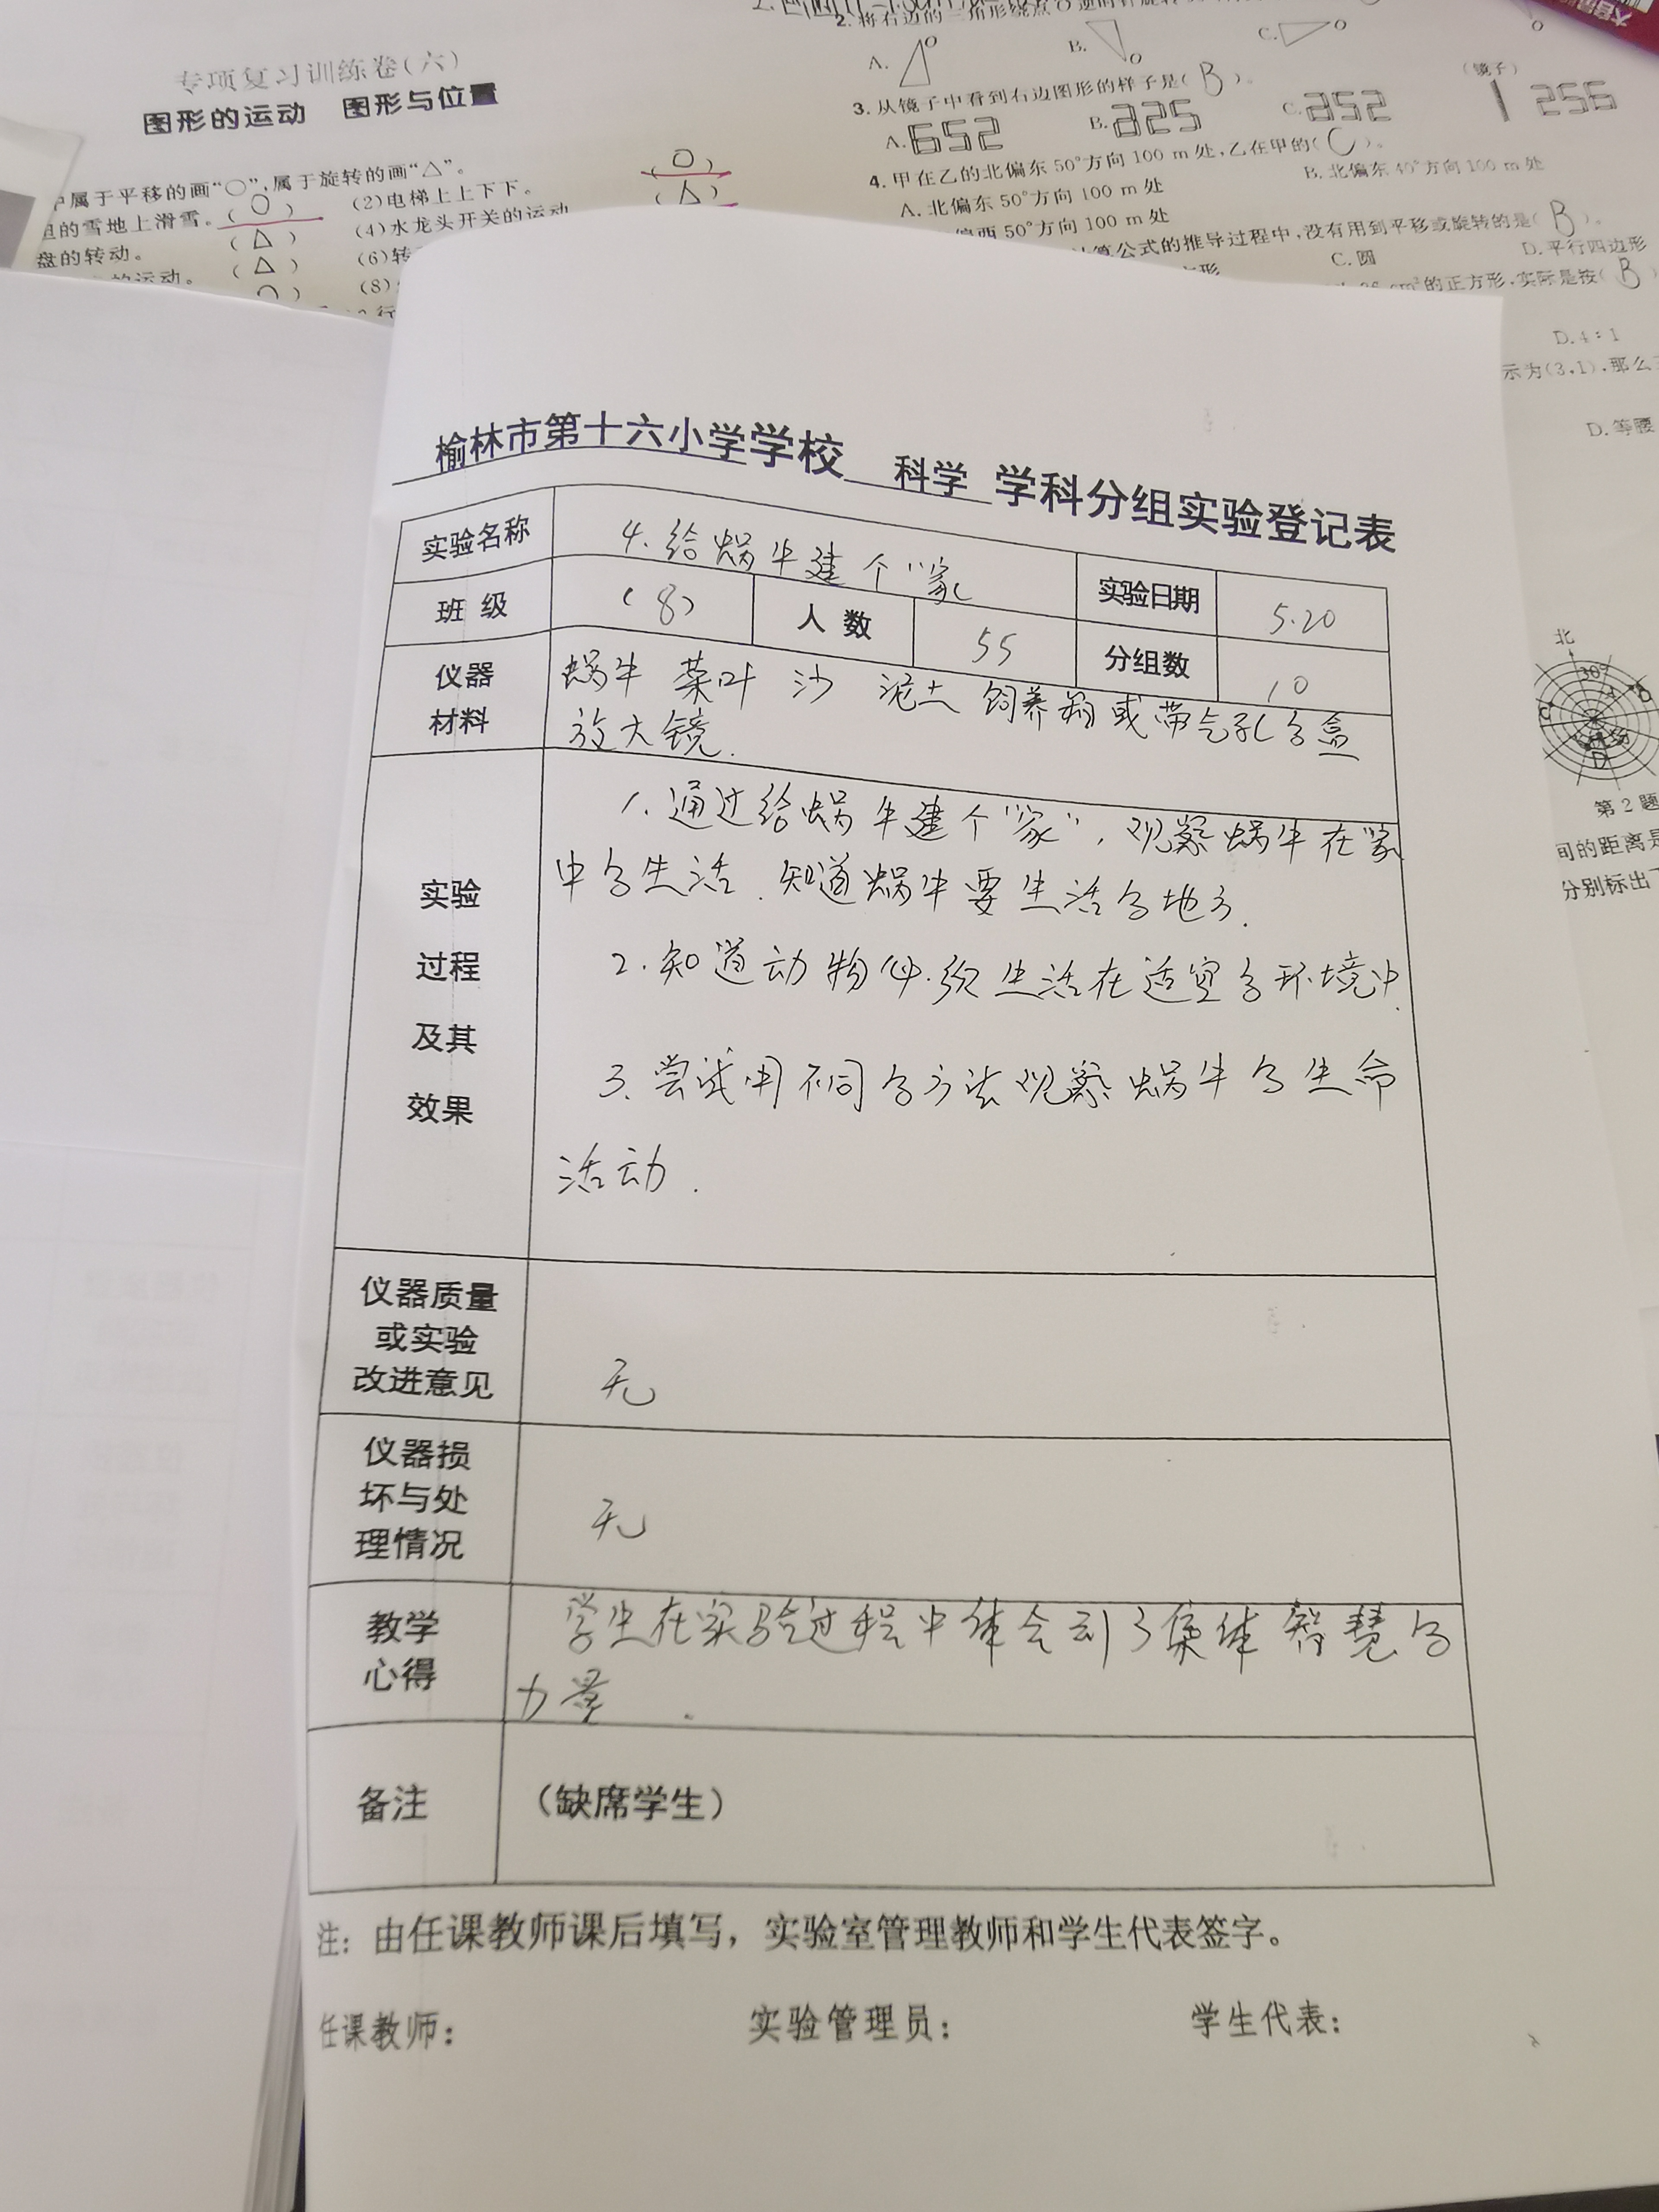 专项复习训练卷(六)
图形的运动 图形与位置
中属于平移的画“○”,属于旋转的画“△”。
的雪地上滑雪。(○)
(2)电梯上上下下。
(○)
盘的转动。
(△)
(4)水龙头开关的运动
(△)
的运动。
(△)
(6)转
(8)
2.将右边的三角形绕点O逆时针旋转
A.
O
B.
O
C.
O
3.从镜子中看到右边图形的样子是(B)。
(镜子)
A.
B.
C.
256
4.甲在乙的北偏东50°方向100 m处,乙在甲的(C)。
A.北偏东50°方向100 m处
B.北偏东40°方向100 m处
偏西50°方向100 m处
算公式的推导过程中,没有用到平移或旋转的是(B)。
C.圆
D.平行四边形
cm²的正方形,实际是按(B)
D.4:1
示为(3,1),那么
D.等腰
北
30°
第2题
间的距离是
分别标出
榆林市第十六小学学校 科学 学科分组实验登记表
实验名称
4.给蜗牛建个“家
实验日期
5.20
班 级
(8)
人 数
55
分组数
10
仪器
材料
蜗牛 菜叶 沙 泥土 饲养箱或带气孔的盒
放大镜.
实验
过程
及其
效果
1.通过给蜗牛建个“家”,观察蜗牛在家
中的生活.知道蜗牛要生活的地方.
2.知道动物必须生活在适宜的环境中.
3.尝试用不同的方法观察蜗牛的生命
活动.
仪器质量
或实验
改进意见
无
仪器损
坏与处
理情况
无
教学
心得
学生在实验过程中体会到了集体智慧的
力量.
备注
(缺席学生)
注:由任课教师课后填写,实验室管理教师和学生代表签字。
任课教师:
实验管理员:
学生代表: